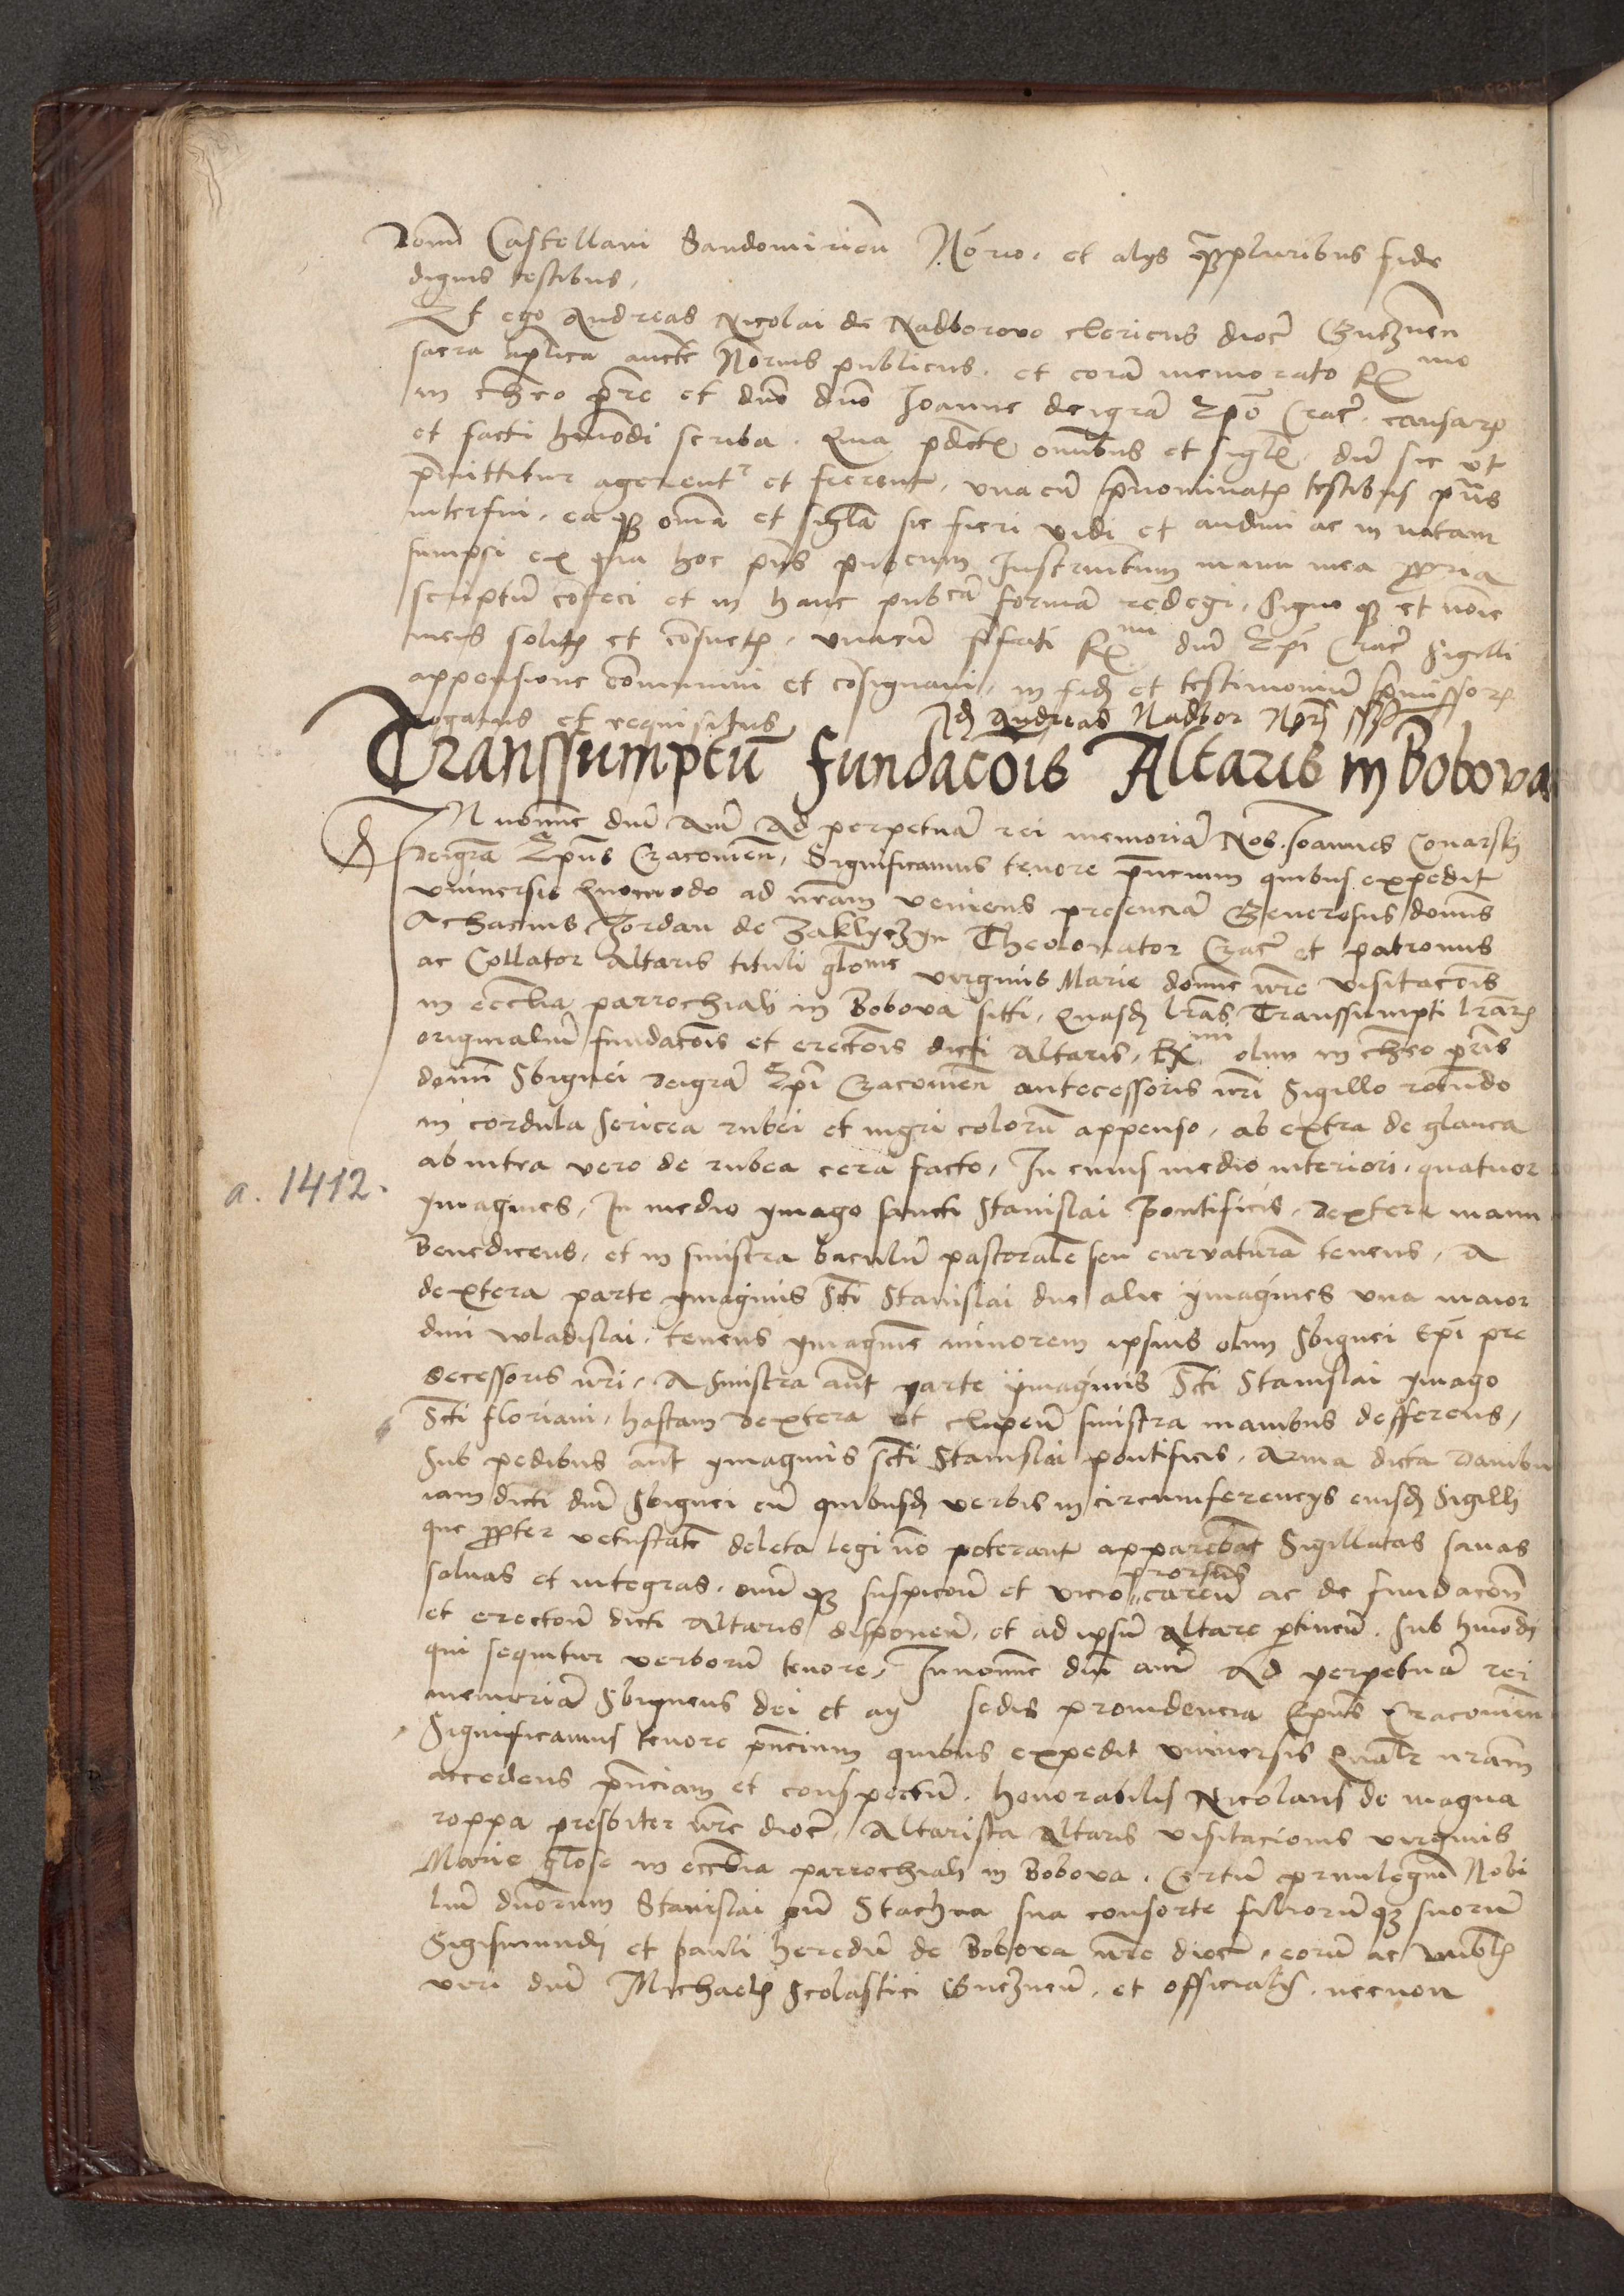 Domi Castellani Sandomirien Nõrio. et alijs q̃pluribus fide
dignis testibus,
Et ego Andreas Nicolai de Nadborovo clericus dioc̃ Gnẽznen
sacra aplica aucte Norius publicus. et corã memorato R mo
in chro pre et dno dno Joanne dei grã Epo Crac̃. causarꝝ
et facti hmõdi scriba. Quia pdict omibus et sigl. dũ sic ut
pmittitur agerent et fierent, una cũ pnominatꝭ testibus pñs
interfui. eaqꝫ omia et sigla sic fieri vidi et audivi ac in notam
sumpsi ex qua hoc pñs pubcum Instrumtum manu mea ppria
scriptũ cõfeci et in hanc pubcã formã redegi. Signo qꝫ et noie
meis solitꝭ et cõsuetꝭ. unacũ pfati R mi dni Epi Crac̃ Sigilli
appensione cõmunivi et cõsignavi, in fidẽ et testimoniũ pmissorꝝ
rogatus et requisitus Idẽ Andreas Nadbor Norĩ sspt
Transsumptũ fundacõis Altaris in Bobova
IN nomine dni Amẽ Ad perpetuã rei memoriã Nos. Joannes Conarskj
dei grã Epus Cracovien, Significamus tenore pñcium quibus expedit
universis Quomodo ad nram veniens presenciã Generosus domus
Achacius Jordan de Zaklyczyn Theolonator Crac̃ et patronus
ac Collator Altaris tituli glome virginis Marie domic nre visitacõis
in ecclia parrochiali in Bobova siti, Quasdã lras Transsumpti lrarꝝ
originaliũ fundacõis et erectõis dicti Altaris, R mi olim in chro pris
domi Sbignei dei grã Epi Cracovien antecessoris nri Sigillo rotundo
in cordula sericea rubei et nigri colorũ appenso, ab extra de glauca
ab intra vero de rubea cera facto, In cuius medio interiori. quatuor
ymagines, In medio ymago sancti Stanislai Pontificis. dextera manu
Benedicens, et in sinistra baculũ pastoralẽ seu curvaturã tenens, A
dextera parte ymaginis Scti Stanislai due alie ymagines una maior
dni Wladislai. tenens ymaginẽ minorem ipsius olim Sbignei Epi pre
decessoris nri, A sinistra aut parte ymaginis Scti Stanislai ymago
Scti floriani, hastam dextera et clipeũ sinistra manibus defferens,
Sub pedibus aut ymaginis scti Stanislai pontificis. Arma dicta Dambn
iam dicti dni Sbignei cũ quibusdã verbis in circumferencijs eiusdẽ Sigilli
que ppter vetustatẽ deleta legi nõ poterant apparebãt Sigillatas sanas
salvas et integras. omĩ qꝫ suspicoñ et vicio prorsus careñ ac de fundacoñ
et erectoñ dicti Altaris disponeñ, et ad ipsũ altare ptineñ. sub hmõdi
qui sequitur verborũ tenore, In nomine dni amẽ Ad perpetuã rei
memoriã Sbigneus dei et ap sedis providencia Epus Cracovien
Significamus tenore pñcium quibus expedit universis Qualr nram
accedens pñciam et conspectũ. honorabilis Nicolaus de magna
roppa presbiter nre dioc̃, Altarista altaris visitacionis virginis
Marie gloſe in ecclia parrochiali in Bobova. Certũ privilegiũ Nobi
liũ dnorum Stanislai cũ Stachna sua consorte filiorũqꝫ suorũ
Sigismundi et pauli heredũ de Bobova nre dioc̃. eorũ ac
viri dni Michaelis Scolastici Gneznen, et officialis. necnon
a. 1412.